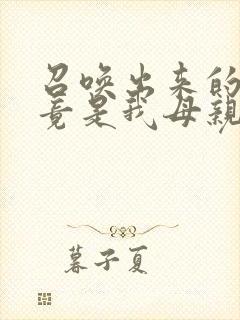 召唤出来的
竟是我母親
暮子夏